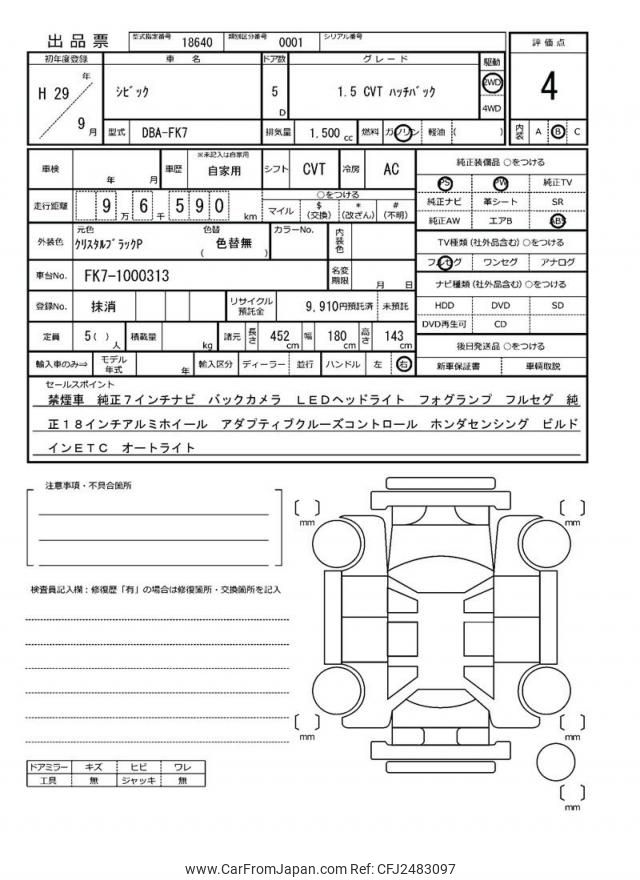 出品票 型式指定番号 18640 類別区分番号 0001 シリアル番号
初年度登録 車 名 ドア数 グレード 駆動 評価点
H 29 年 9 月 シビック 5 D 1.5 CVT ハッチバック 2WD 4WD 4
型式 DBA-FK7 排気量 1.500 cc 燃料 ガソリン 軽油 ( ) 内装 A B C
車検 年 月 車歴 ※未記入は自家用 自家用 シフト CVT 冷房 AC
純正装備品 ○をつける
PS PW 純正TV
純正ナビ 革シート SR
純正AW エアB ABS
走行距離 9 万 6 千 5 9 0 km
○をつける
マイル $ (交換) * (改ざん) # (不明)
外装色 元色 クリスタルブラックP 色替 ( 色替無 ) カラーNo. 内装色
TV種類 (社外品含む) ○をつける
フルセグ ワンセグ アナログ
車台No. FK7-1000313 名変期限 月 日
ナビ種類 (社外品含む) ○をつける
HDD DVD SD
DVD再生可 CD
登録No. 抹消 リサイクル預託金 9,910円預託済 未預託
定員 5 ( ) 人 積載量 kg 諸元 長さ 452 cm 幅 180 cm 高さ 143 cm
後日発送品 ○をつける
新車保証書 車輌取説
輸入車のみ⇒ モデル年式 年 輸入区分 ディーラー 並行 ハンドル 左 右
セールスポイント
禁煙車 純正7インチナビ バックカメラ LEDヘッドライト フォグランプ フルセグ 純
正18インチアルミホイール アダプティブクルーズコントロール ホンダセンシング ビルド
インETC オートライト
注意事項・不具合箇所
検査員記入欄：修復歴「有」の場合は修復箇所・交換箇所を記入
mm
mm
mm
mm
mm
ドアミラー キズ ヒビ ワレ
工具 無 ジャッキ 無
www.CarFromJapan.com Ref: CFJ2483097